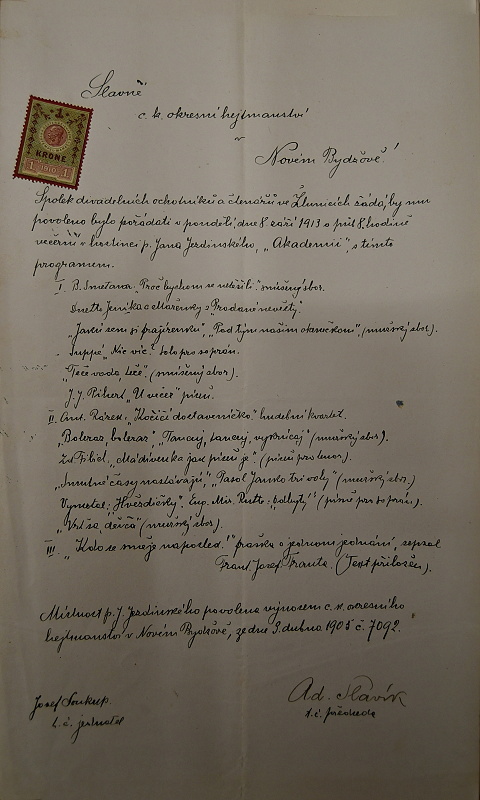 Slavné
c. k. okresní hejtmanství
v
Novém Bydžově!
1
KRONE
1 1910 1
Spolek divadelních ochotníků a čtenářů ve Žlunicích žádá, by mu
povoleno bylo pořádati v pondělí, dne 8. září 1913 o půl 8. hodině
večerní v hostinci p. Jana Jezdinského, „Akademii“, s tímto
programem.
I. B. Smetana: „Proč bychom se netěšili“ smíšený sbor.
Duetto Jeníka a Mařenky z „Prodané nevěsty“.
„Jakú sem si frajerenku“, „Pod tým naším okenečkom“, (mužský sbor).
Suppé „Nic víc.“ Solo pro soprán.
„Teče voda, teče“. (smíšený sbor).
J. J. Pihert „U večer“ píseň.
II. Ant. Rázek. „Kočičí dostaveníčko“ hudební kvartet.
„Boleraz, boleraz“, „Tancuj, tancuj, vykrúcaj“ (mužský sbor).
Zd. Fibich, „Mádivenka jak píseň je“. (píseň pro tenor).
„Smutné časy nastávajú“, „Pasol Janko tri voly“ (mužský sbor.)
Vymetal: „Hvězdičky“. Eug. Mir. Rutte: (písně pro soprán).
(mužský sbor).
III. „Kdo se směje naposled.“ fraška o jednom jednání, sepsal
Frant. Josef Franta. (Text přiložen).
Místnost p. J. Jezdinského povolena výnosem c. k. okresního
hejtmanství v Novém Bydžově, ze dne 3. dubna 1905 č. 7092.
Josef Soukup.
t. č. jednatel
Ad. Slavík
t. č. předseda